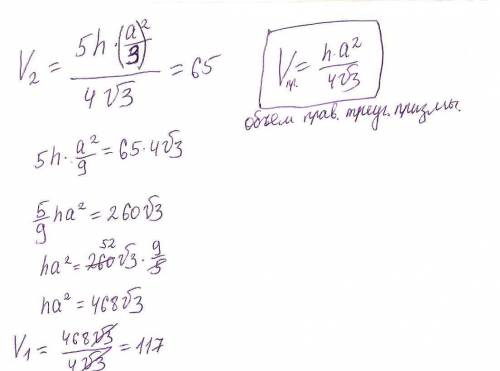 V₂ = 5h·(a/3)² / 4√3 = 65
Vпр. = h·a² / 4√3
объем прав. треуг. призмы.
5h·a²/9 = 65·4√3
5/9 ha² = 260√3
52
ha² = 260√3·9/5
ha² = 468√3
V₁ = 468√3 / 4√3 = 117